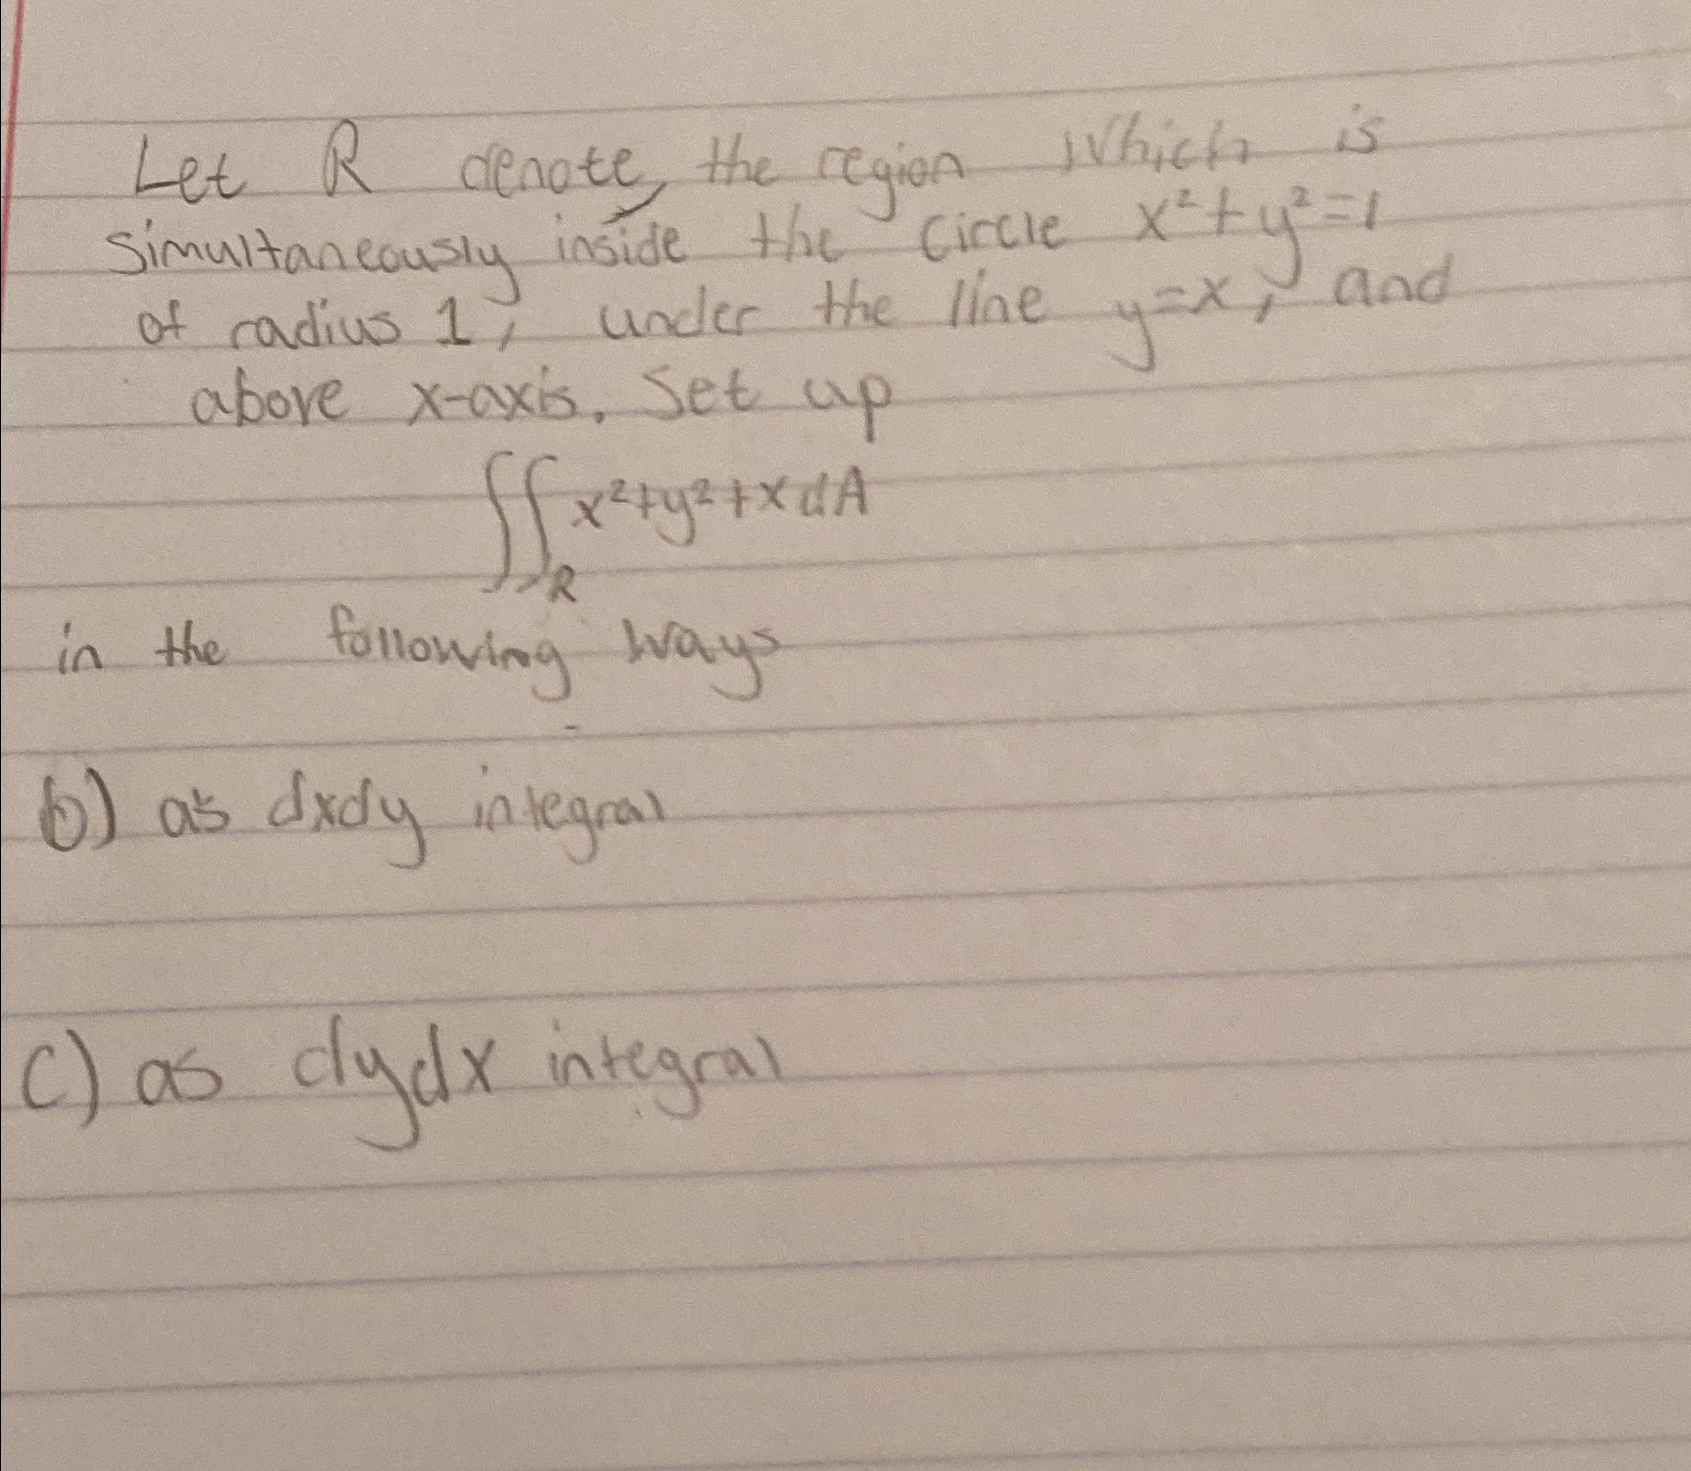 Let R denote the region which is
simultaneously inside the circle x²+y²=1
of radius 1, under the line y=x, and
above x-axis. Set up
∬_R x²+y²+x dA
in the following ways
b) as dxdy integral
c) as dydx integral